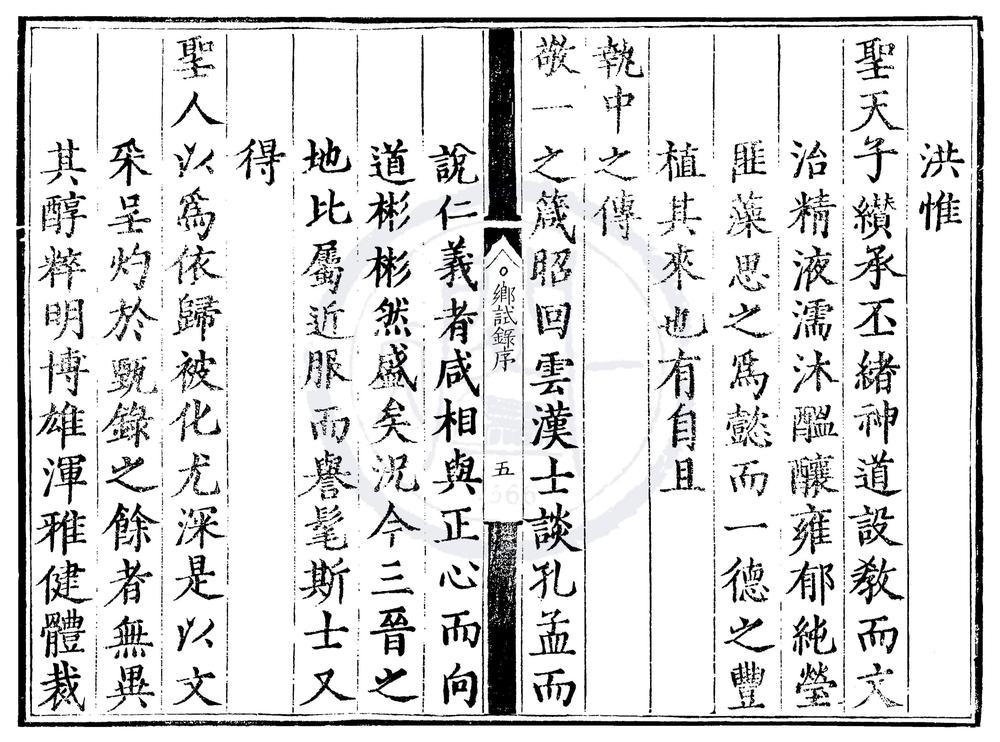 洪惟
聖天子纘承丕緒神道設教而文
治精液濡沐醞釀雍郁純瑩
匪藻思之爲懿而一德之豐
植其來也有自且
執中之傳
敬一之箴昭回雲漢士談孔孟而
鄉試錄序
五
說仁義者咸相與正心而向
道彬彬然盛矣況今三晉之
地比屬近服而譽髦斯士又
得
聖人以爲依歸被化尤深是以文
采呈灼於甄錄之餘者無異
其醇粹明博雄渾雅健體裁